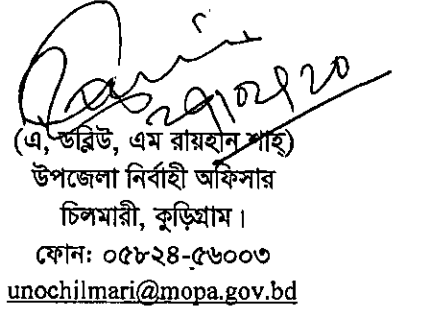 (এ, ডব্লিউ, এম রায়হান শাহ্)
উপজেলা নির্বাহী অফিসার
চিলমারী, কুড়িগ্রাম।
ফোন: ০৫৮২৪-৫৬০০৩
unochilmari@mopa.gov.bd